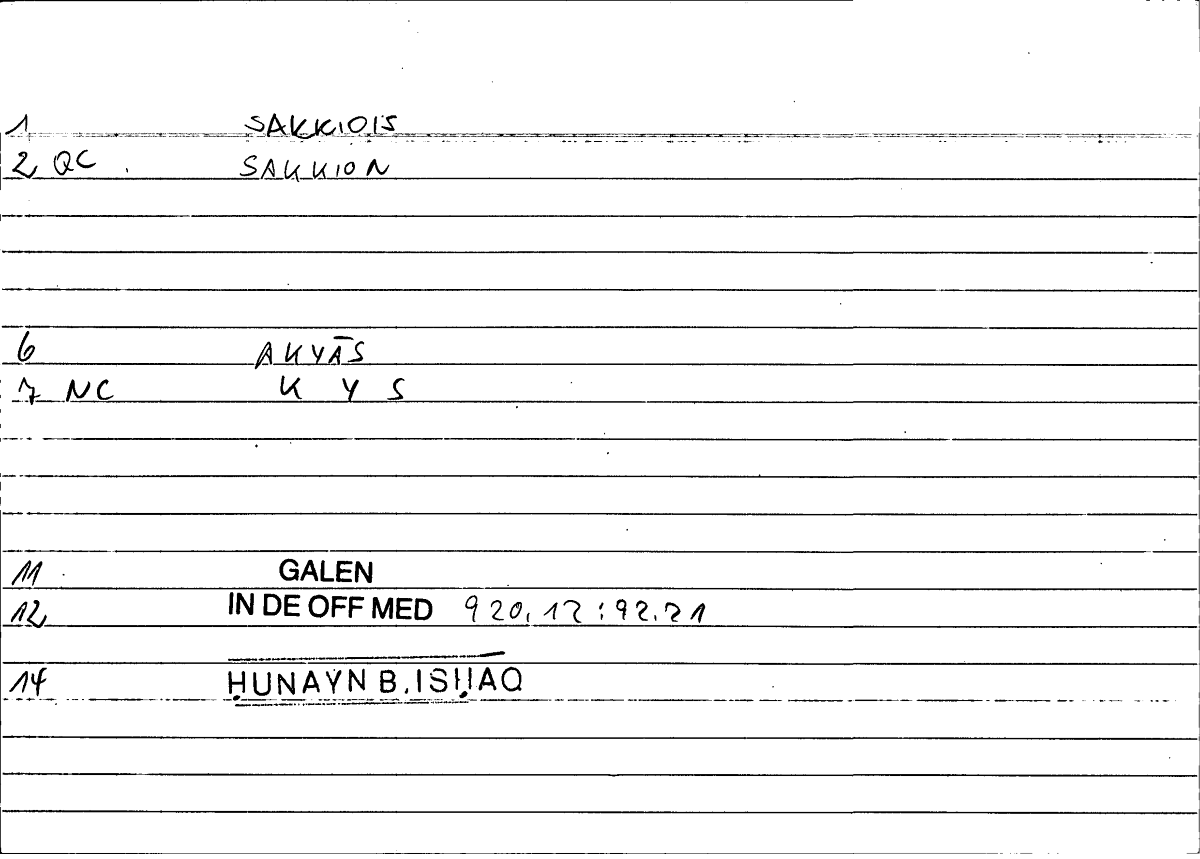 1 SAKKIOIS
2 QC SAKKION
6 AKYĀS
7 NC K Y S
11 GALEN
12 IN DE OFF MED 920,12:92.21
14 ḤUNAYN B. ISḤAQ